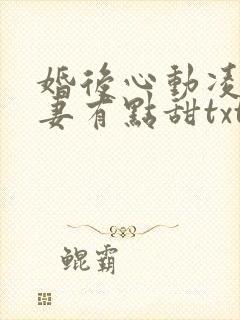 婚後心動凌
妻有點甜txt
鯤霸